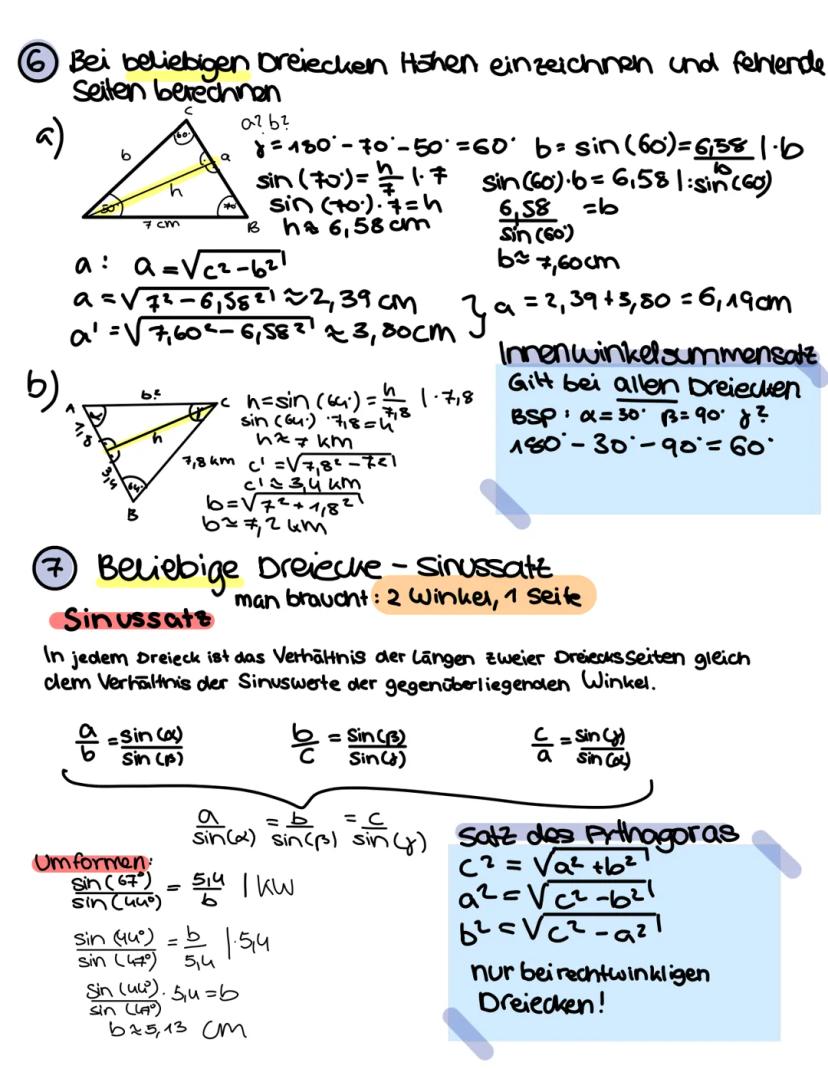 6 Bei beliebigen Dreiecken Höhen einzeichnen und fehlende
Seiten berechnen
a)
C
60°
b
a
h
50°
70°
7 cm
B
a? b?
γ = 180° - 70° - 50° = 60°
sin (70°) = h/7 |·7
sin (70°)·7 = h
h ≈ 6,58 cm
b = sin (60°) = 6,58/b |·b
sin (60°)·b = 6,58 |:sin (60)
6,58/sin (60°) = b
b ≈ 7,60 cm
a: a = √c² - b²
a = √7² - 6,58² ≈ 2,39 cm
a' = √7,60² - 6,58² ≈ 3,80 cm
} a = 2,39 + 3,80 = 6,19 cm
Innenwinkelsummensatz
Gilt bei allen Dreiecken
BSP: α = 30° β = 90° γ?
180° - 30° - 90° = 60°
b)
b?
A
α
γ
C
7,8
h
7,8 km
3,4
64°
B
h = sin (64°) = h/7,8 |·7,8
sin (64°)·7,8 = h
h ≈ 7 km
c' = √7,8² - 7²
c' ≈ 3,4 km
b = √7² + 1,8²
b ≈ 7,2 km
7 Beliebige Dreiecke - Sinussatz
man braucht: 2 Winkel, 1 Seite
Sinussatz
In jedem Dreieck ist das Verhältnis der Längen zweier Dreiecksseiten gleich
dem Verhältnis der Sinuswerte der gegenüberliegenden Winkel.
a/b = sin(α)/sin(β) b/c = sin(β)/sin(γ) c/a = sin(γ)/sin(α)
a/sin(α) = b/sin(β) = c/sin(γ)
Umformen:
sin (67°)/sin (44°) = 5,4/b | KW
sin (44°)/sin (47°) = b/5,4 |·5,4
sin (44°)/sin (47°) · 5,4 = b
b ≈ 5,13 cm
Satz des Pythagoras
c² = √a² + b²
a² = √c² - b²
b² = √c² - a²
nur bei rechtwinkligen
Dreiecken!